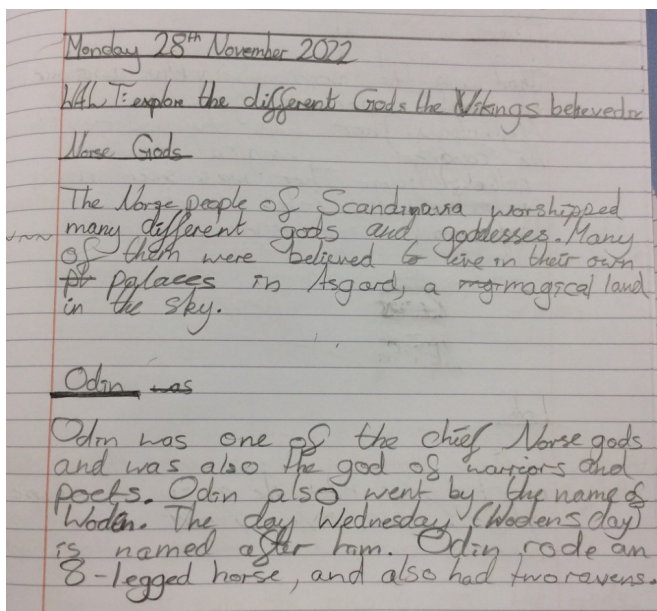 Monday 28th November 2022
WALT: explore the different Gods the Vikings believed in
Norse Gods
The Norse people of Scandinavia worshipped
many different gods and goddesses. Many
of them were believed to live in their own
palaces in Asgard, a magical land
in the sky.
Odin was
Odin was one of the chief Norse gods
and was also the god of warriors and
poets. Odin also went by the name of
Woden. The day Wednesday (Wodens day)
is named after him. Odin rode an
8-legged horse, and also had two ravens.